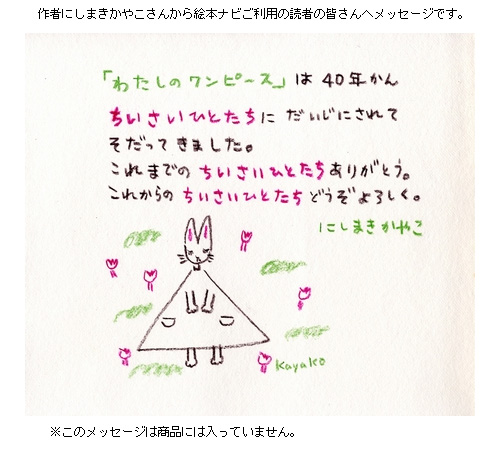 作者にしまきかやこさんから絵本ナビご利用の読者の皆さんへメッセージです。
「わたしのワンピース」は40年かん
ちいさいひとたちに だいじにされて
そだって きました。
これまでの ちいさいひとたちありがとう。
これからの ちいさいひとたち どうぞよろしく。
にしまきかやこ
Kayako
※このメッセージは商品には入っていません。